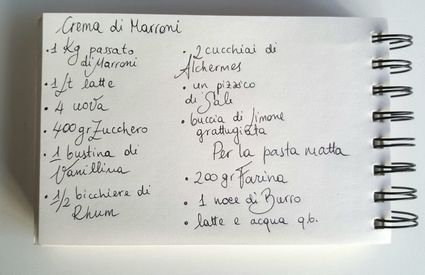 Crema di Marroni
• 1 Kg passato
di Marroni
• 1 lt latte
• 4 uova
• 400 gr Zucchero
• 1 bustina di
Vanillina
• 1/2 bicchiere di
Rhum
• 2 cucchiai di
Alchermes
• un pizzico
di Sale
• buccia di limone
grattugiata
Per la pasta matta
• 200 gr Farina
• 1 noce di Burro
• latte e acqua q.b.